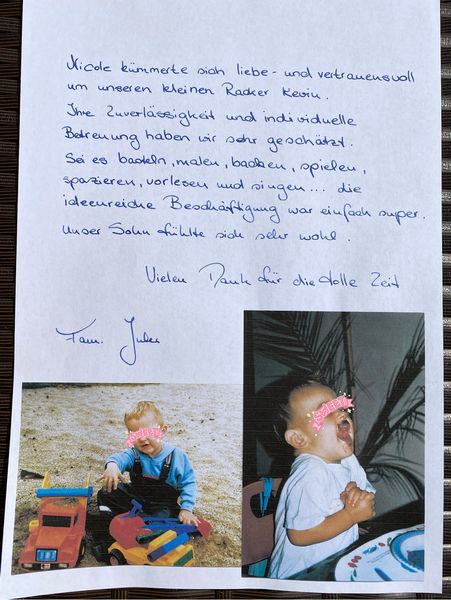 Nicole kümmerte sich liebe- und vertrauensvoll
um unseren kleinen Racker Kevin.
Ihre Zuverlässigkeit und individuelle
Betreuung haben wir sehr geschätzt.
Sei es basteln, malen, backen, spielen,
spazieren, vorlesen und singen... die
ideenreiche Beschäftigung war einfach super.
Unser Sohn fühlte sich sehr wohl.
Vielen Dank für die tolle Zeit
Fam.